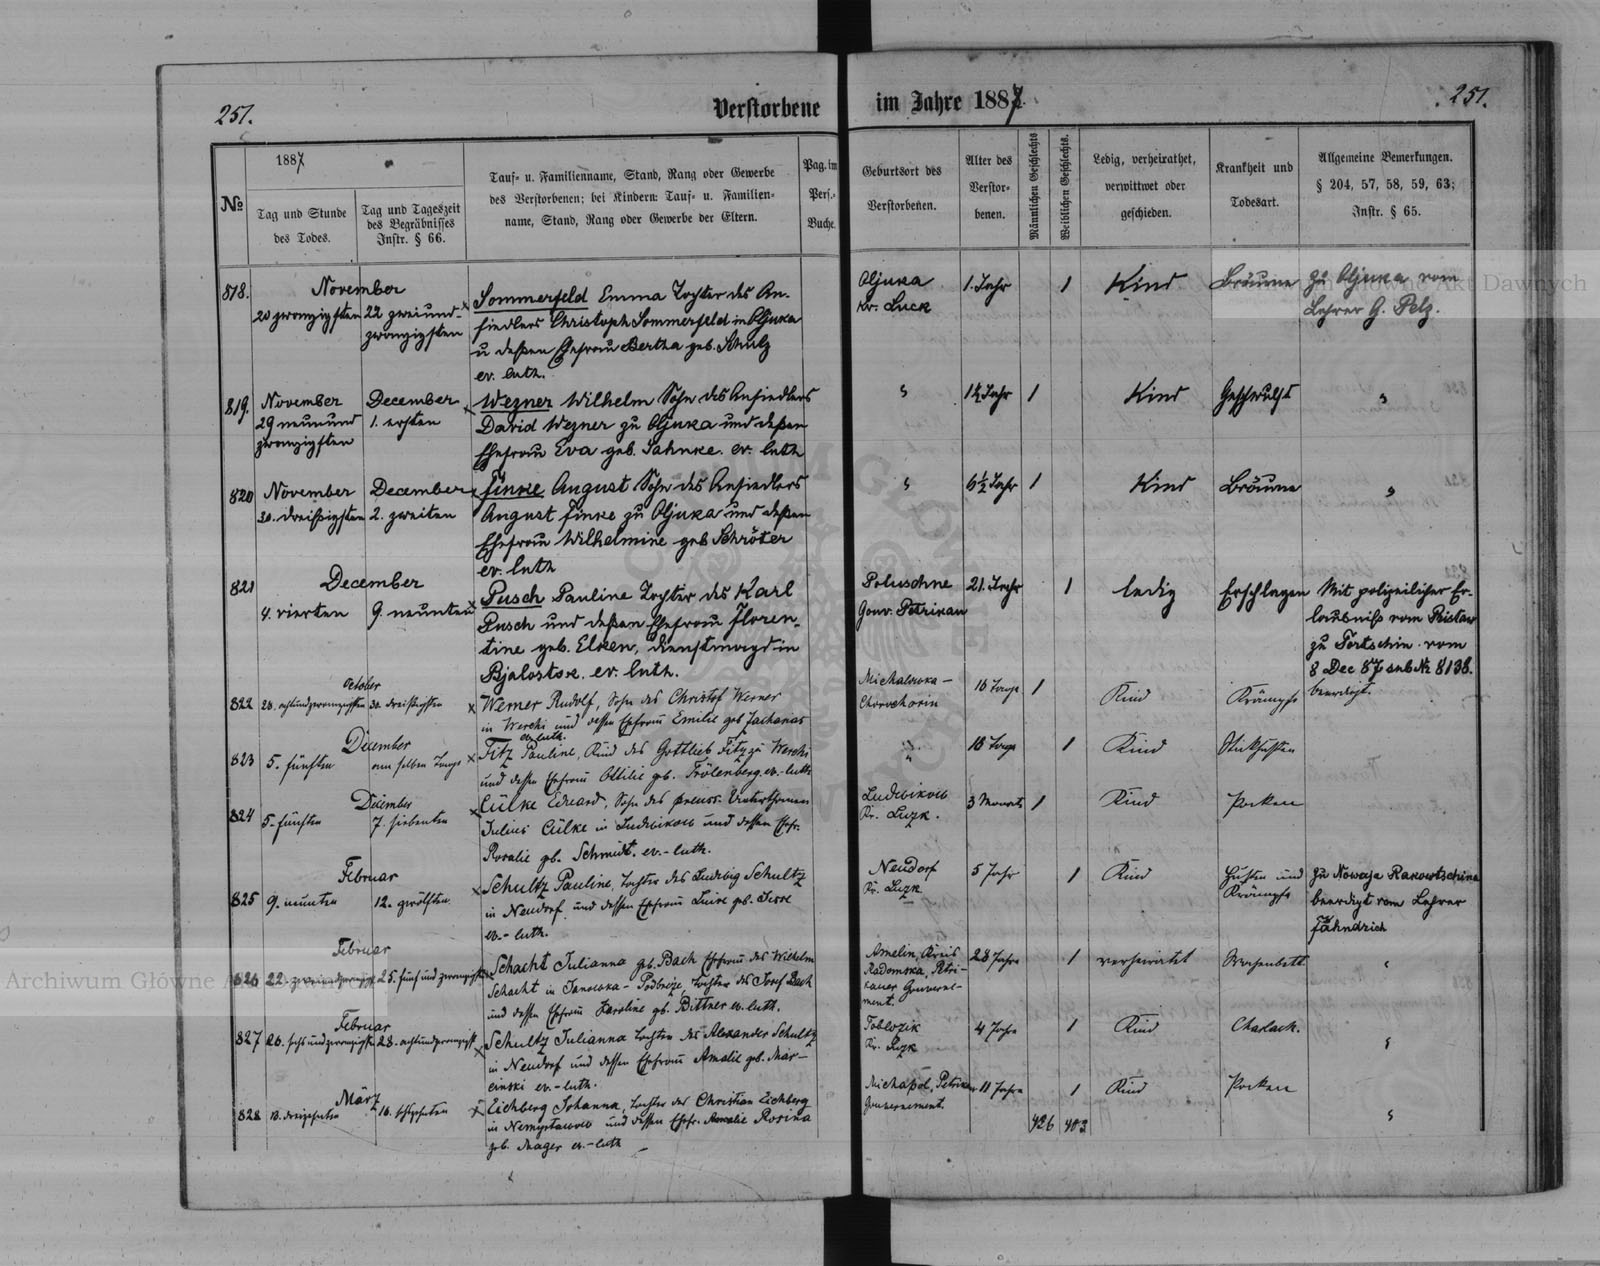 251.
Verstorbene im Jahre 1887.
251.
№
1887
Tag und Stunde
des Todes.
Tag und Tageszeit
des Begräbnisses
Instr. § 66.
Tauf- u. Familienname, Stand, Rang oder Gewerbe
des Verstorbenen; bei Kindern: Tauf- u. Familien-
name, Stand, Rang oder Gewerbe der Eltern.
Pag. im
Pers.-
Buche.
Geburtsort des
Verstorbenen.
Alter des
Verstor-
benen.
Männlichen Geschlechts
Weiblichen Geschlechts.
Ledig, verheirathet,
verwittwet oder
geschieden.
Krankheit und
Todesart.
Allgemeine Bemerkungen.
§ 204, 57, 58, 59, 63;
Instr. § 65.
818.
November
20 zwanzigsten
22 zweiund-
zwanzigsten
Sommerfeld Emma Tochter des An-
siedlers Christoph Sommerfeld in Olyka
u deßen Ehefrau Bertha geb. Schulz
ev. luth.
Olyka
Kr. Luck
1. Jahr
1
Kind
Bräune
zu Olyka vom
Lehrer G. Pelz.
819.
November
29 neunund
zwanzigsten
December
1. ersten
Wegner Wilhelm Sohn des Ansiedlers
David Wegner zu Olyka und deßen
Ehefrau Eva geb. Jahnke. ev. luth
"
1½ Jahr
1
Kind
Geschwulst
"
820
November
30. dreißigsten
December
2. zweiten
Finke August Sohn des Ansiedlers
August Finke zu Olyka und deßen
Ehefrau Wilhelmine geb Schröter
ev. luth
"
6½ Jahr
1
Kind
Bräune
"
821
December
4. vierten
9. neunten
Pusch Pauline Tochter des Karl
Pusch und deßen Ehefrau Floren-
tine geb. Elken, Dienstmagd in
Bjalostok. ev. luth.
Poluschne
Gouv. Petrikau
21. Jahr
1
ledig
Erschlagen
Mit polizeilicher Er-
laubniß vom Pristaw
zu Tortschin vom
8 Dec 87 sub № 8138.
beerdigt.
822
October
28. achtundzwanzigsten
30. dreißigsten
Werner Rudolf, Sohn des Christof Werner
in Werchi und dessen Ehefrau Emilie geb Zacharias
ev. luth.
Michalowka-
18 Tage
1
Kind
Krämpfe
823
December
5. fünften
am selben Tage
Fitz Pauline, Kind des Gottlieb Fitz zu Werchi
und dessen Ehefrau Ottilie geb. Frölenberg. ev.-luth
"
18 Tage
1
Kind
Stickhusten
824
December
5. fünften
7. siebenten
Cülke Eduard, Sohn des preuss. Unterthanen
Julius Cülke in Ludwikow und dessen Ehefr.
Rosalie gb. Schmidt. ev.-luth.
Ludwikow
Kr. Luzk.
3 Monate
1
Kind
Pocken
825
Februar
9. neunten
12. zwölften
Schultz Pauline, Tochter des Ludwig Schultz
in Neudorf und dessen Ehefrau Luise geb. Jesse
ev.-luth.
Neudorf
Kr. Luzk
5 Jahr
1
Kind
Husten und
Krämpfe
Zu Nowaja Rakowtschina
beerdigt vom Lehrer
Fähndrich
826
Februar
22. zweiundzwanzigst.
25. fünf und zwanzigsten
Schacht Julianna geb. Bach Ehefrau des Wilhelm
Schacht in Janowka-Podbreze, Tochter des Josef Bach
und dessen Ehefrau Karoline gb. Bittner ev. luth.
Amelin, Kreis
Radomska, Petri-
kauer Gouverne-
ment.
28 Jahre
1
verheiratet
Wochenbett
"
827
Februar
26. sechsundzwanzigste
28. achtundzwanzigst
Schultz Julianna Tochter des Alexander Schultz
in Neudorf und dessen Ehefrau Amalie geb. Mar-
cinski ev.-luth.
Kr. Luzk
4 Jahre
1
Kind
Charlach.
"
828
März
13. dreizehnten
16. sechzehnten
Eichberg Johanna, Tochter des Christian Eichberg
in und dessen Ehefr. Amalie Rosina
geb. Mager ev.-luth
Petrikau
Gouvernement.
11 Jahre
1
Kind
Pocken
"
426
403
Archiwum Główne Akt Dawnych
Archiwum Główne Akt Dawnych